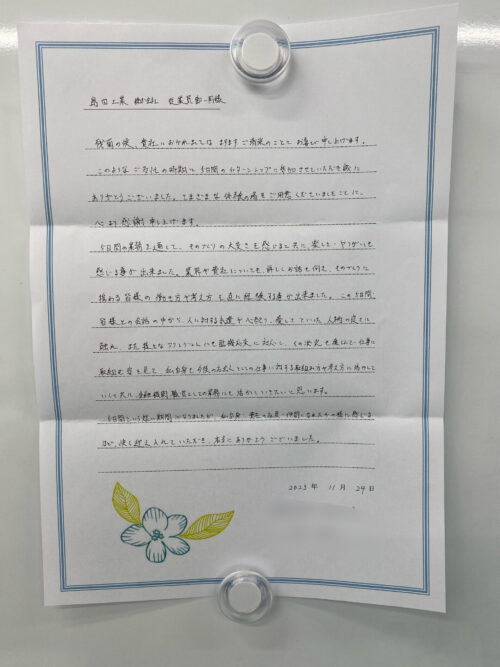 島田工業 株式会社 従業員御一同様
残菊の候、貴社におかれましては ますますご清栄のことと お喜び申し上げます。
このような ご多忙の時期に 5日間のインターンシップに参加させていただき誠に
ありがとうございました。さまざまな 体験の場をご用意くださいましたことに、
心より感謝申し上げます。
5日間の業務を通して、ものづくりの大変さを感じると共に 楽しさ・やりがいも
感じる事が出来ました。業界や貴社についても、詳しくお話を伺え、ものづくりに
携わる皆様の働き方や考え方を直に経験する事が出来ました。この5日間、
皆様との会話の中から、人に対する気遣や心配り、優しさといった 人柄の良さに
触れ、また 様々なアクシデントにも臨機応変に対応し、その決定を重んじて仕事に
取組む姿を見て 私自身も今後の社会人としての仕事に対する取組み方や考え方に活かして
いくと共に、金融機関職員としての業務にも活かしていきたいと思います。
5日間という短い期間ではありましたが、私自身、貴社の社員・仲間になれたかの様に感じる
ほど、快く迎え入れていただき、本当にありがとうございました。
2023年 11月 24日